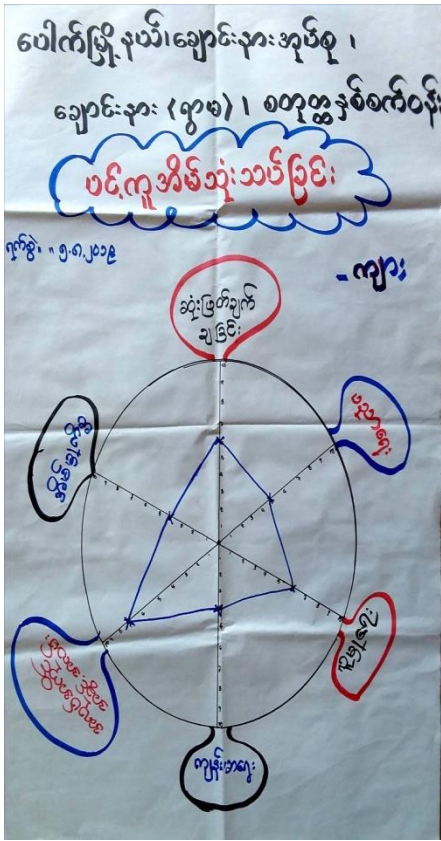 ပေါက်မြို့နယ်၊ချောင်းနားအုပ်စု ၊
ချောင်းနား (ရွာမ)၊ စတုတ္ထနှစ်စက်ဝန်း
ပင့်ကူအိမ်သုံးသပ်ခြင်း
ရက်စွဲ၊ ။ ၅.၈.၂၀၁၉
- ကျား
ဆုံးဖြတ်ချက်
ချခြင်း
ပညာရေး
ကျန်းမာရေး